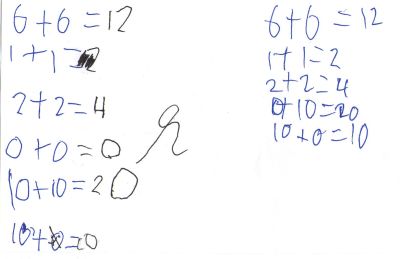 6+6=12
1+1=2
2+2=4
0+0=0
10+10=20
10+0=0
6+6=12
1+1=2
2+2=4
10+10=20
10+0=10